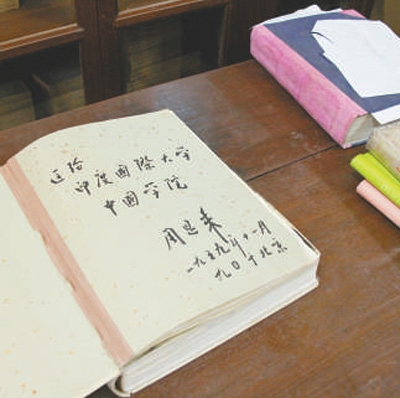 送给
印度國際大学
中國学院
周恩来
一九五九年十一月
九日于北京